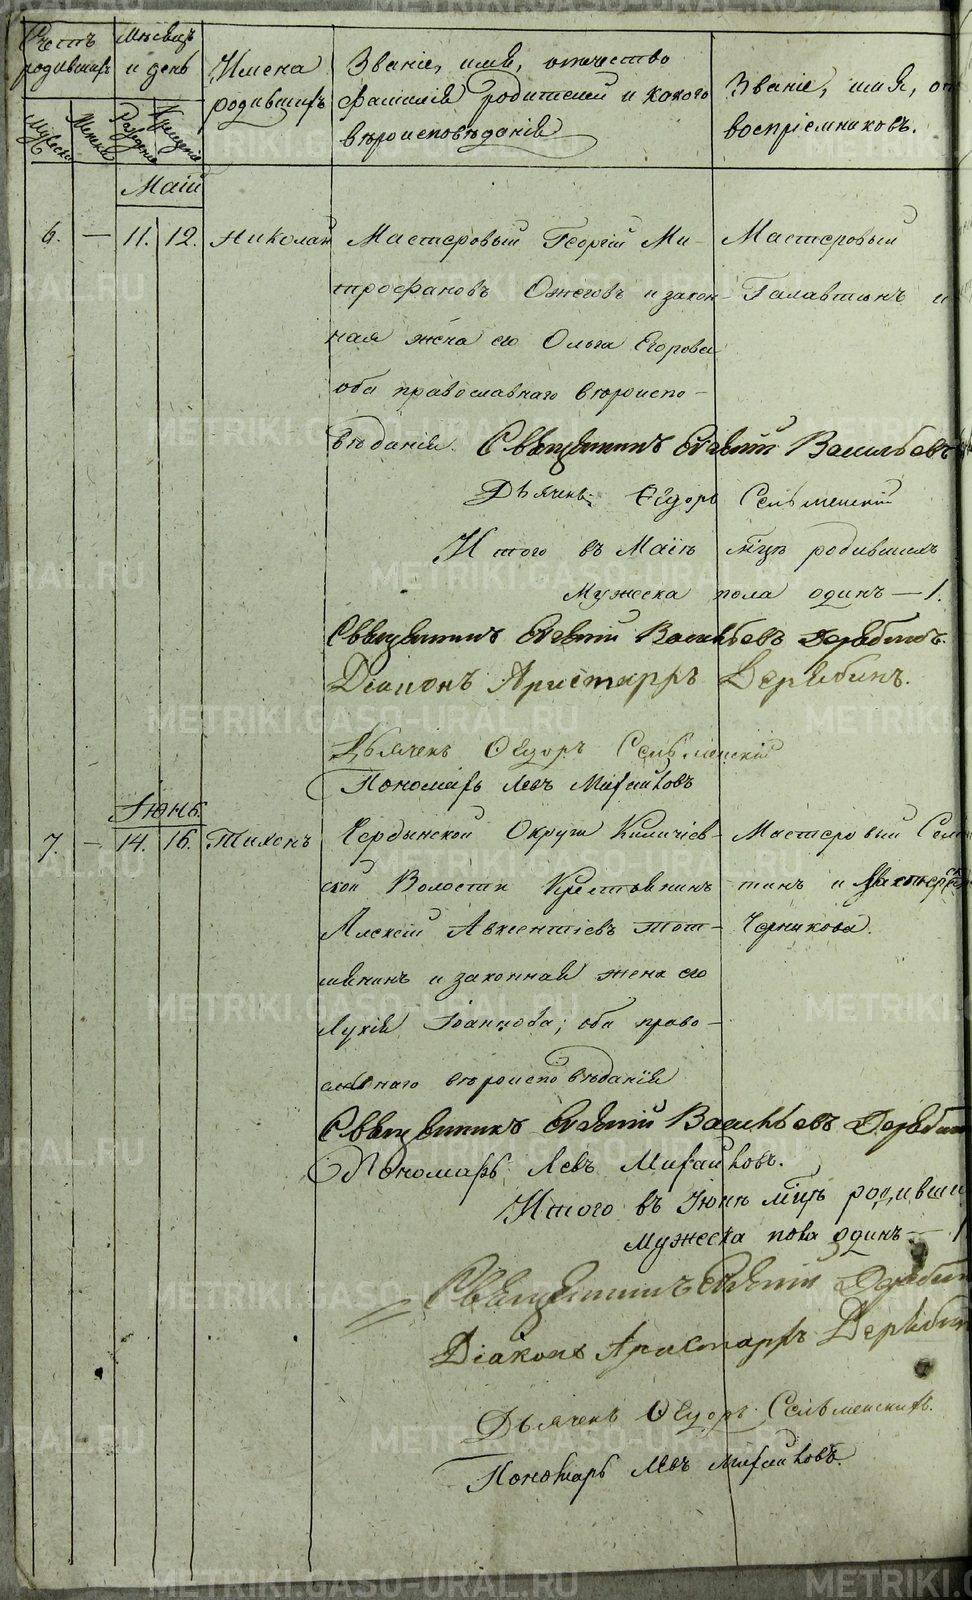 Счетъ родившихъ
Мѣсяцъ и день
Имена родившихъ
Званіе, имя, отчество
фамилія родителей и какого
вѣроисповѣданія
Званіе, имя, от
воспріемниковъ.
Мужеска
Женска
Рожденія
Крещенія
Маій
6. — 11. 12. Николай Мастеровый Георгій Ми- Мастеровый
трофановъ Ожеговъ и закон- Галавтинъ и
ная жена его Ольга Егорова
оба православнаго вѣроиспо-
вѣданія. Священникъ Евгеній Васильевъ
Дьячекъ Ѳедоръ Селѣменскій
Итого въ Маіѣ мцѣ родившихъ
Мужеска пола одинъ — 1.
Священникъ Евгеній Васильевъ Дерябинъ.
Діаконъ Аристархъ Дерябинъ.
Дьячекъ Ѳедоръ Селѣменскій
Пономарь Левъ Михайловъ
Іюнь.
7. — 14. 16. Тихонъ Чердынской Округи Мастеровый
ской Волости Крестьянинъ тинъ и
Алексій Авксентіевъ Тот- Черникова.
мянинъ и законная жена его
Лукія Іоаннова; оба право-
славнаго вѣроисповѣданія
Священникъ Евгеній Васильевъ Дерябин
Пономарь Левъ Михайловъ.
Итого въ Іюнѣ мцѣ родивши
Мужеска пола одинъ — 1
Священникъ Евгеній Дерябин
Діаконъ Аристархъ Дерябин
Дьячекъ Ѳедоръ Селѣменскій.
Пономарь Левъ Михайловъ.
METRIKI.GASO-URAL.RU